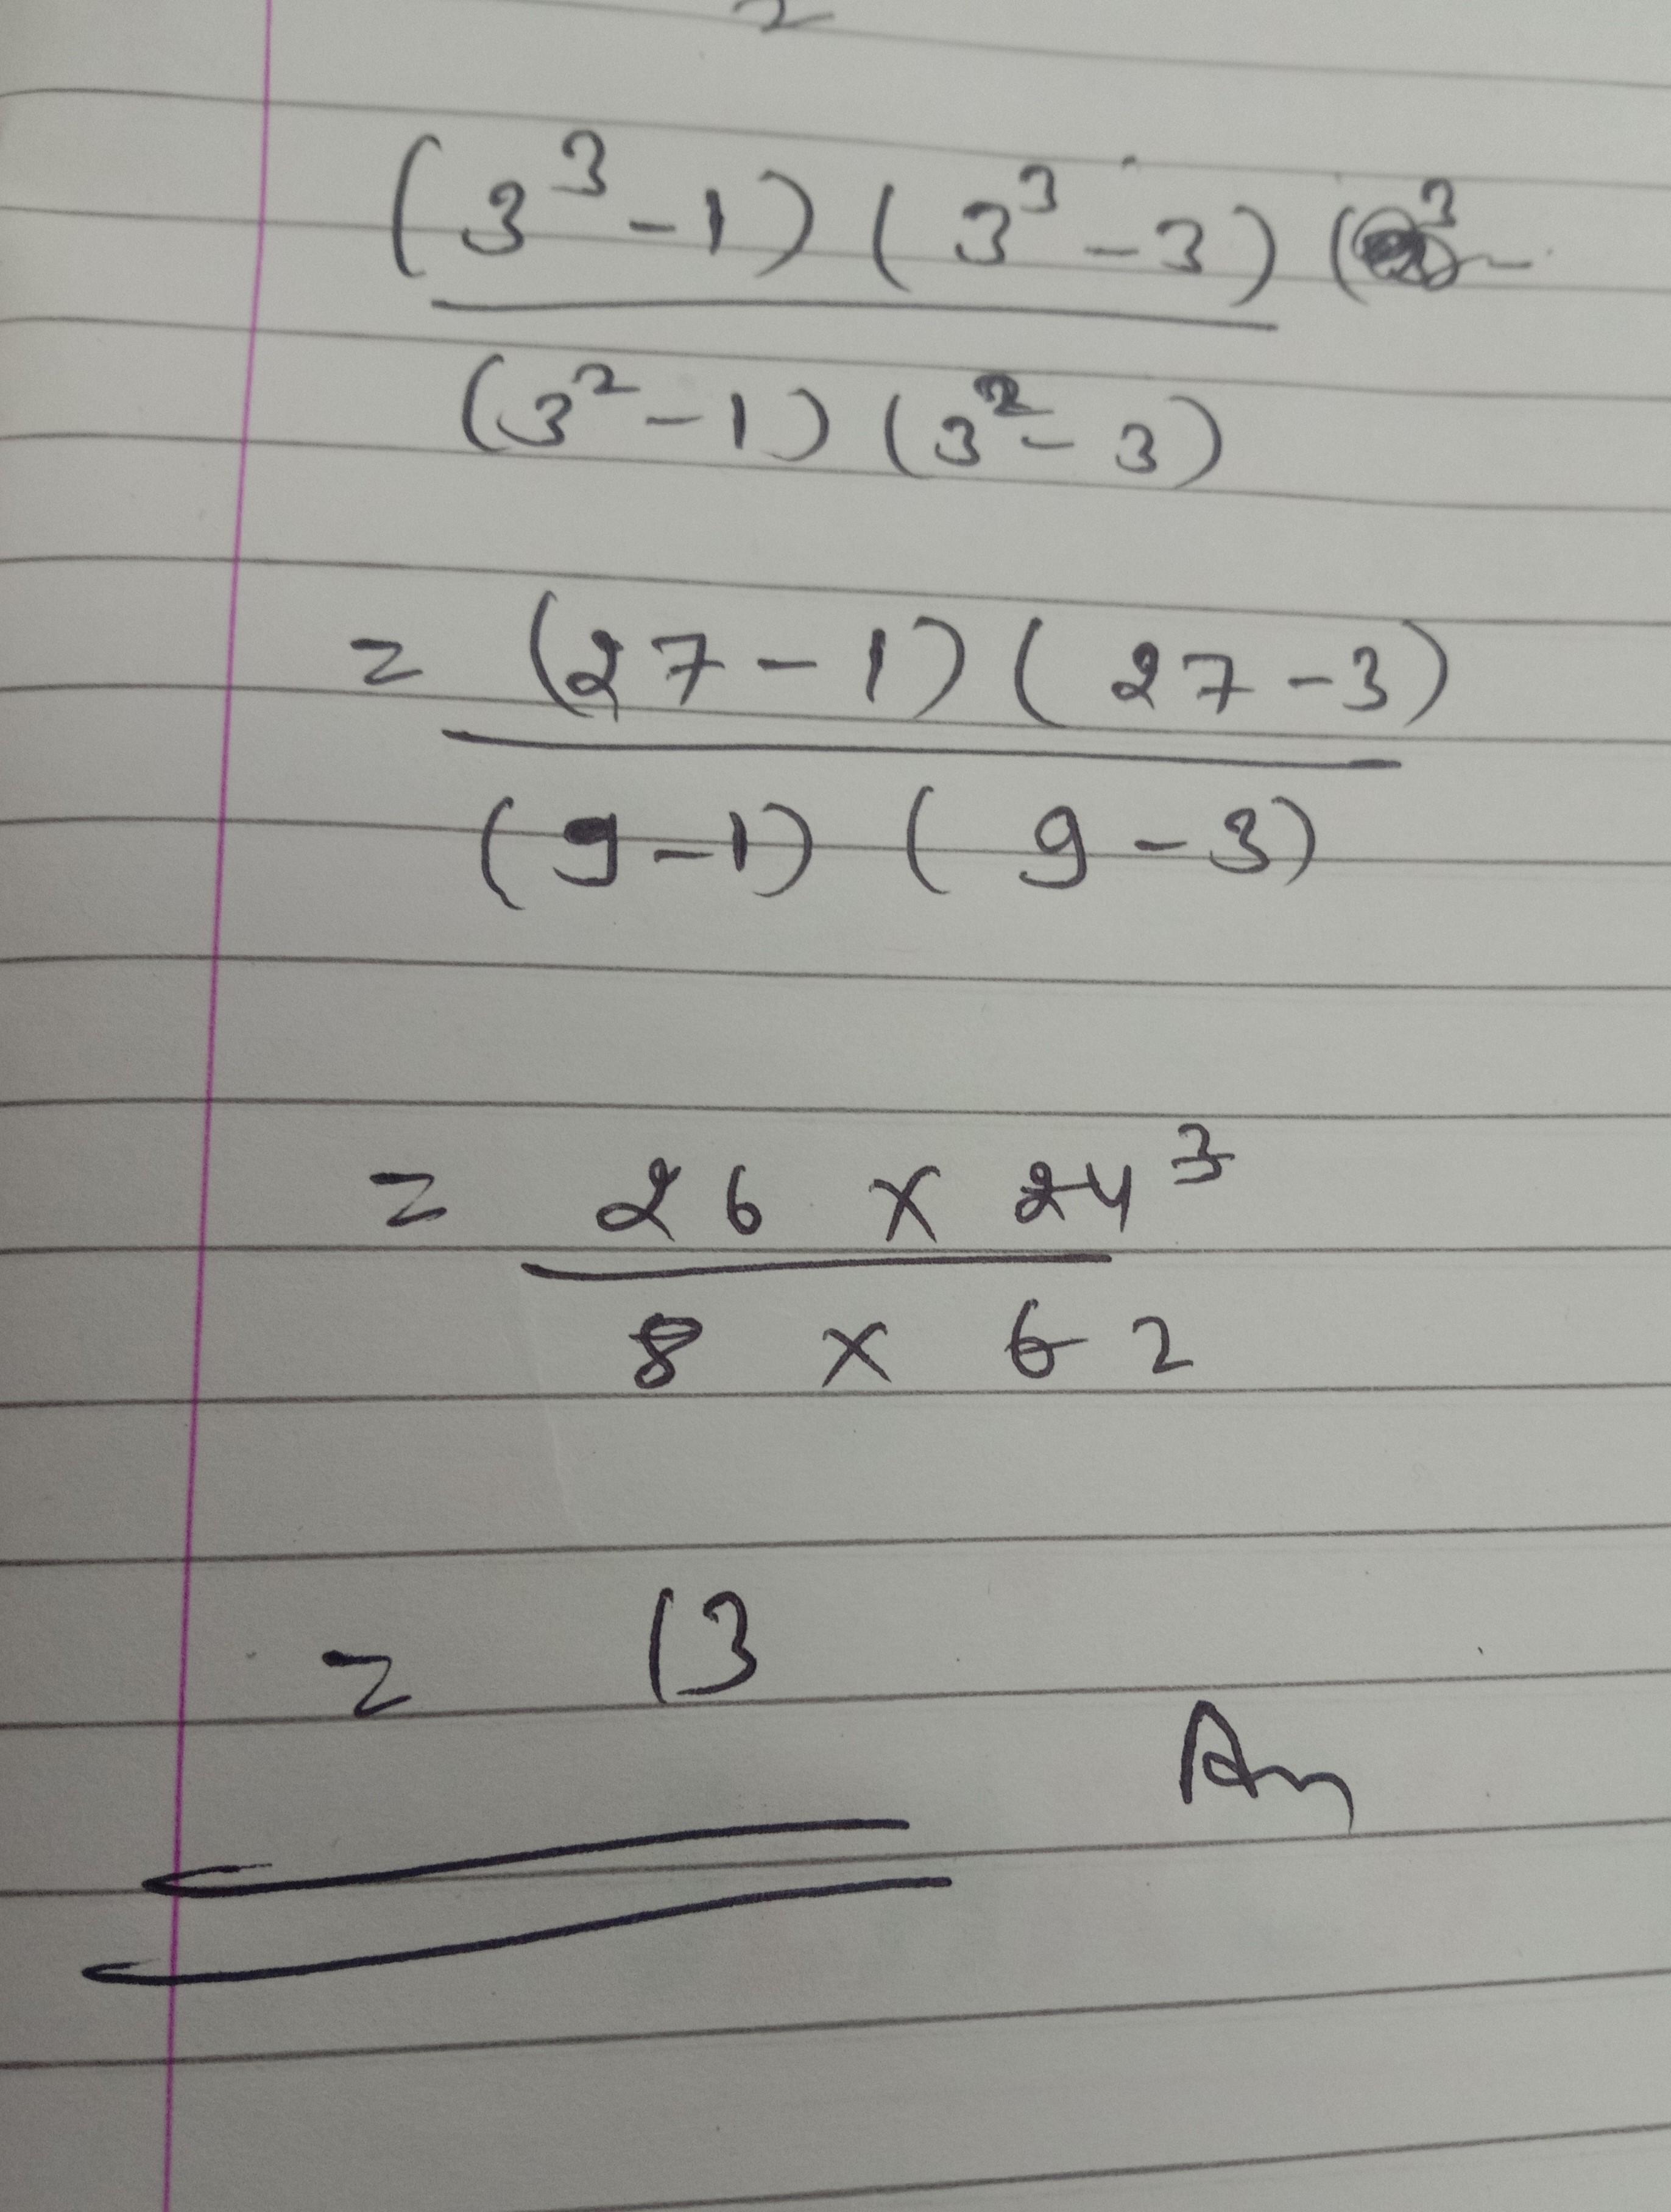 2
(3³ - 1) (3³ - 3) (
(3² - 1) (3² - 3)
= (27 - 1) (27 - 3)
(9 - 1) (9 - 3)
= 26 × 24 3
8 × 6 2
= 13
An